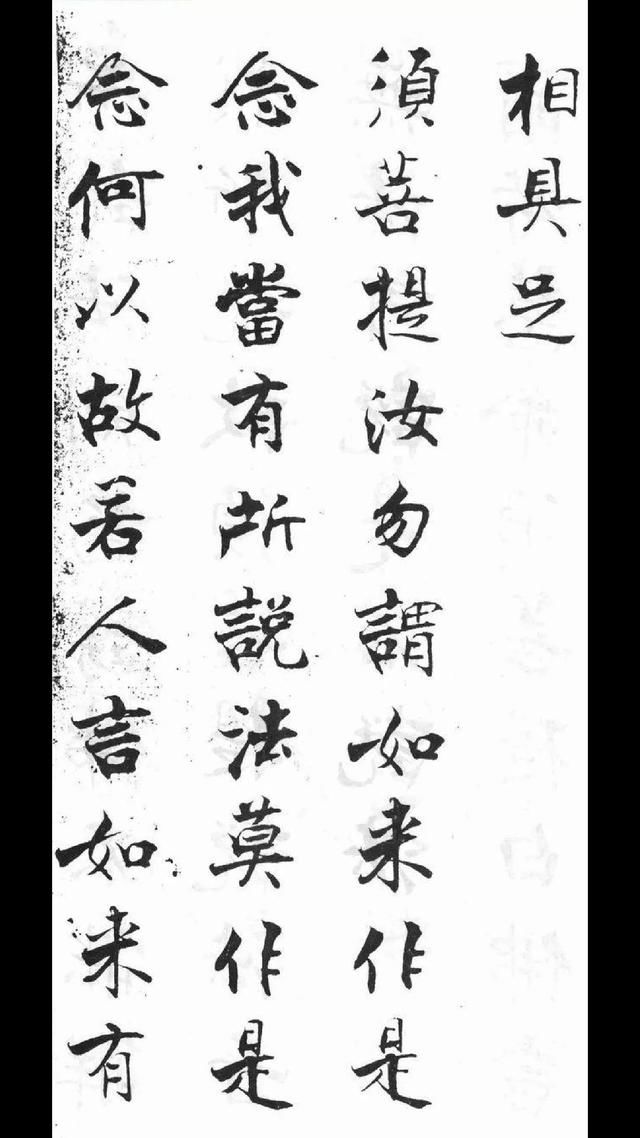 相具足
須菩提汝勿謂如来作是
念我當有所説法莫作是
念何以故若人言如来有